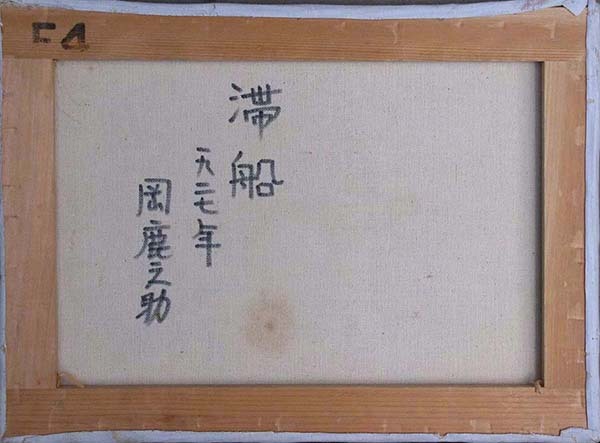 F4
滞船
一九二七年
岡鹿之助